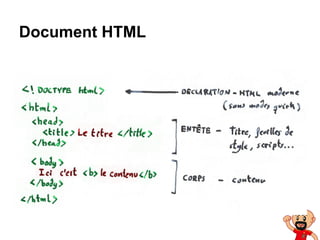 Document HTML
<! DOCTYPE html> ← DÉCLARATION - HTML moderne
(sans modes quirk)
<html>
<head>
<title> Le titre </title>
</head>
ENTÊTE - Titre, feuilles de
style, scripts...
<body>
Ici c'est <b> le contenu </b>
</body>
CORPS - contenu
</html>